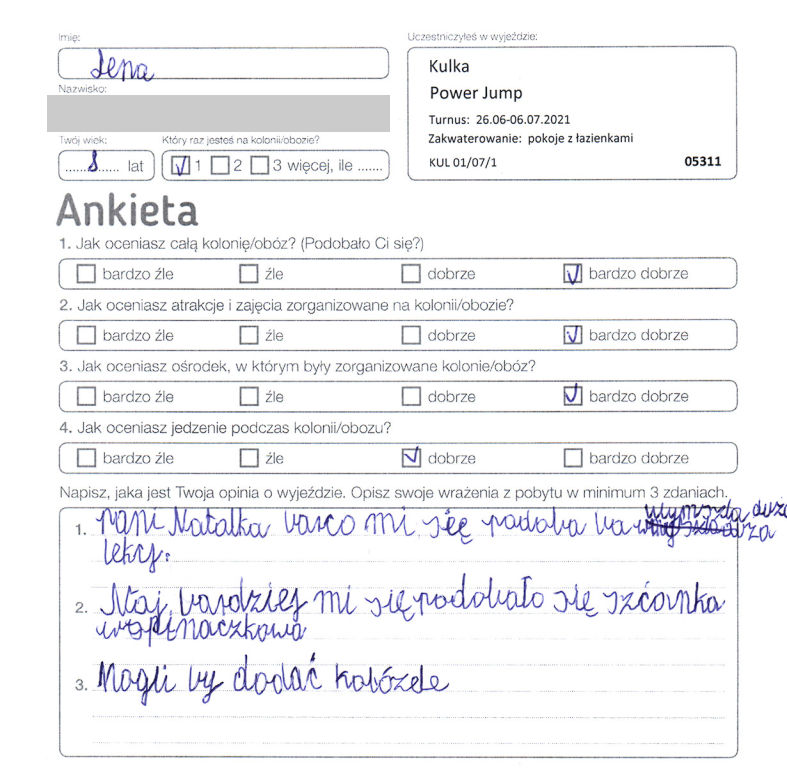 Imię:
Lena
Uczestniczyłeś w wyjeździe:
Kulka
Power Jump
Turnus: 26.06-06.07.2021
Zakwaterowanie: pokoje z łazienkami
KUL 01/07/1 05311
Nazwisko:
Twój wiek:
8 lat
Który raz jesteś na kolonii/obozie?
1 2 3 więcej, ile .......
Ankieta
1. Jak oceniasz całą kolonię/obóz? (Podobało Ci się?)
bardzo źle źle dobrze bardzo dobrze
2. Jak oceniasz atrakcje i zajęcia zorganizowane na kolonii/obozie?
bardzo źle źle dobrze bardzo dobrze
3. Jak oceniasz ośrodek, w którym były zorganizowane kolonie/obóz?
bardzo źle źle dobrze bardzo dobrze
4. Jak oceniasz jedzenie podczas kolonii/obozu?
bardzo źle źle dobrze bardzo dobrze
Napisz, jaka jest Twoja opinia o wyjeździe. Opisz swoje wrażenia z pobytu w minimum 3 zdaniach.
1. pani Natalka varco mi się podoba
2. Naj vardziej mi się podobało się szćanka
wspinaczkowa
3. Mogli vy dodać